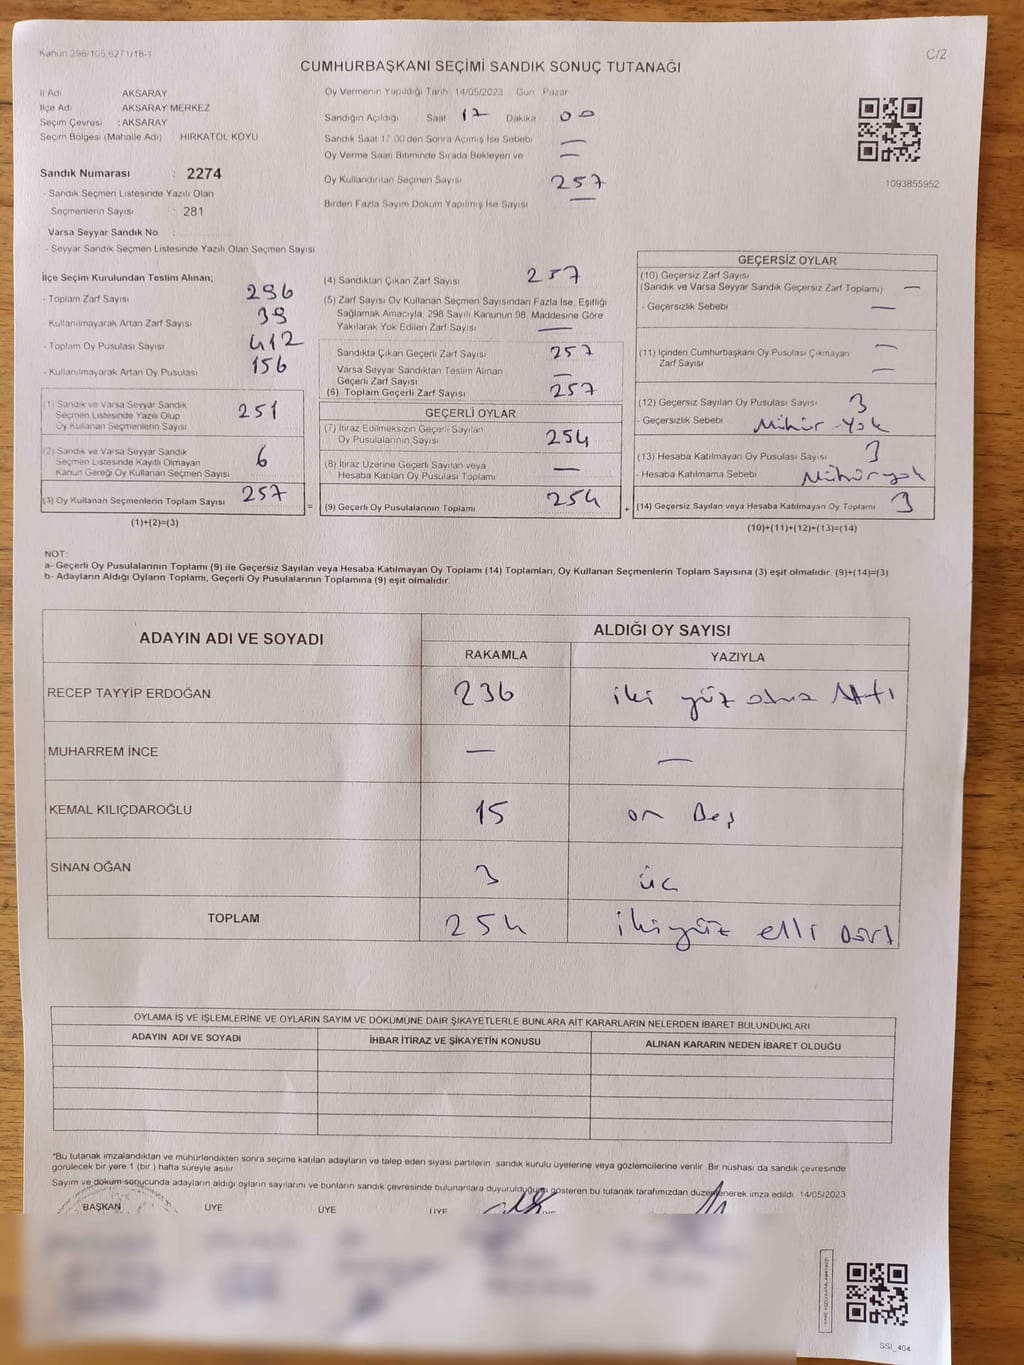 Kanun 298/105,6271/18-1
C/2
CUMHURBAŞKANI SEÇİMİ SANDIK SONUÇ TUTANAĞI
İl Adı AKSARAY
İlçe Adı AKSARAY MERKEZ
Seçim Çevresi : AKSARAY
Seçim Bölgesi (Mahalle Adı) HIRKATOL KÖYÜ
Sandık Numarası : 2274
- Sandık Seçmen Listesinde Yazılı Olan
Seçmenlerin Sayısı : 281
Varsa Seyyar Sandık No :
- Seyyar Sandık Seçmen Listesinde Yazılı Olan Seçmen Sayısı
Oy Vermenin Yapıldığı Tarih 14/05/2023 Gün Pazar
Sandığın Açıldığı Saat 17 Dakika 00
Sandık Saat 17.00'den Sonra Açılmış İse Sebebi —
Oy Verme Saati Bitiminde Sırada Bekleyen ve —
Oy Kullandırılan Seçmen Sayısı 257
Birden Fazla Sayım Döküm Yapılmış İse Sayısı —
1093855952
İlçe Seçim Kurulundan Teslim Alınan;
- Toplam Zarf Sayısı 296
- Kullanılmayarak Artan Zarf Sayısı 39
- Toplam Oy Pusulası Sayısı 412
- Kullanılmayarak Artan Oy Pusulası 156
(1) Sandık ve Varsa Seyyar Sandık
Seçmen Listesinde Yazılı Olup
Oy Kullanan Seçmenlerin Sayısı 251
(2) Sandık ve Varsa Seyyar Sandık
Seçmen Listesinde Kayıtlı Olmayan
Kanun Gereği Oy Kullanan Seçmen Sayısı 6
(3) Oy Kullanan Seçmenlerin Toplam Sayısı 257
(1)+(2)=(3)
(4) Sandıktan Çıkan Zarf Sayısı 257
(5) Zarf Sayısı Oy Kullanan Seçmen Sayısından Fazla İse, Eşitliği
Sağlamak Amacıyla, 298 Sayılı Kanunun 98. Maddesine Göre
Yakılarak Yok Edilen Zarf Sayısı —
Sandıkta Çıkan Geçerli Zarf Sayısı 257
Varsa Seyyar Sandıktan Teslim Alınan
Geçerli Zarf Sayısı —
(6) Toplam Geçerli Zarf Sayısı 257
GEÇERLİ OYLAR
(7) İtiraz Edilmeksizin Geçerli Sayılan
Oy Pusulalarının Sayısı 254
(8) İtiraz Üzerine Geçerli Sayılan veya
Hesaba Katılan Oy Pusulası Toplamı —
= (9) Geçerli Oy Pusulalarının Toplamı 254
GEÇERSİZ OYLAR
(10) Geçersiz Zarf Sayısı
(Sandık ve Varsa Seyyar Sandık Geçersiz Zarf Toplamı) —
- Geçersizlik Sebebi —
(11) İçinden Cumhurbaşkanı Oy Pusulası Çıkmayan —
Zarf Sayısı —
(12) Geçersiz Sayılan Oy Pusulası Sayısı 3
- Geçersizlik Sebebi Mühür Yok
(13) Hesaba Katılmayan Oy Pusulası Sayısı 3
- Hesaba Katılmama Sebebi Mühür yok
+ (14) Geçersiz Sayılan veya Hesaba Katılmayan Oy Toplamı 3
(10)+(11)+(12)+(13)=(14)
NOT:
a- Geçerli Oy Pusulalarının Toplamı (9) ile Geçersiz Sayılan veya Hesaba Katılmayan Oy Toplamı (14) Toplamları, Oy Kullanan Seçmenlerin Toplam Sayısına (3) eşit olmalıdır. (9)+(14)=(3)
b- Adayların Aldığı Oyların Toplamı, Geçerli Oy Pusulalarının Toplamına (9) eşit olmalıdır.
ADAYIN ADI VE SOYADI ALDIĞI OY SAYISI
RAKAMLA YAZIYLA
RECEP TAYYİP ERDOĞAN 236 iki yüz otuz Altı
MUHARREM İNCE — —
KEMAL KILIÇDAROĞLU 15 on Beş
SİNAN OĞAN 3 üç
TOPLAM 254 ikiyüz elli Dört
OYLAMA İŞ VE İŞLEMLERİNE VE OYLARIN SAYIM VE DÖKÜMÜNE DAİR ŞİKAYETLERLE BUNLARA AİT KARARLARIN NELERDEN İBARET BULUNDUKLARI
ADAYIN ADI VE SOYADI İHBAR İTİRAZ VE ŞİKAYETİN KONUSU ALINAN KARARIN NEDEN İBARET OLDUĞU
*Bu tutanak imzalandıktan ve mühürlendikten sonra seçime katılan adayların ve talep eden siyasi partilerin sandık kurulu üyelerine veya gözlemcilerine verilir. Bir nüshası da sandık çevresinde
görülecek bir yere 1 (bir) hafta süreyle asılır.
Sayım ve döküm sonucunda adayların aldığı oyların sayılarını ve bunların sandık çevresinde bulunanlara duyurulduğunu gösteren bu tutanak tarafımızdan düzenlenerek imza edildi. 14/05/2023
BAŞKAN ÜYE ÜYE ÜYE
SSI_404